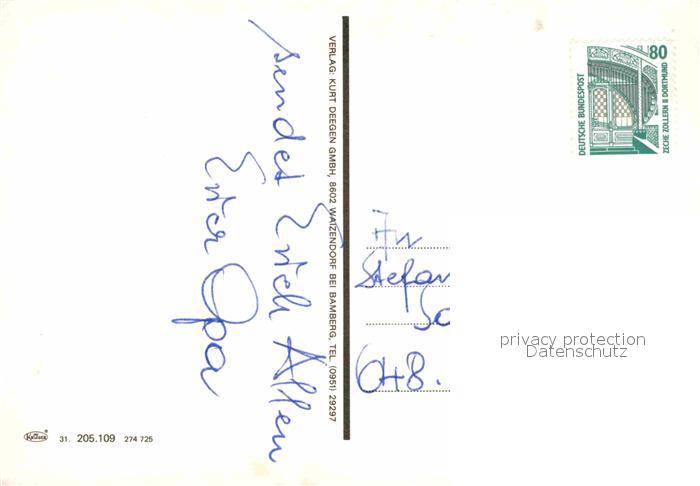 sendet Euch Allen
Euer Opa
VERLAG: KURT DEEGEN GMBH, 8602 WAIZENDORF BEI BAMBERG, TEL. (0951) 29297
80
DEUTSCHE BUNDESPOST
ZECHE ZOLLERN II DORTMUND
Stefan
So
648.
privacy protection
Datenschutz
31. 205.109 274 725